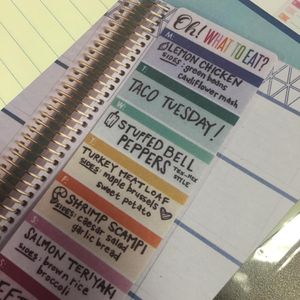 Oh! WHAT TO EAT?
M
LEMON CHICKEN
SIDES: green beans
cauliflower mash
T
TACO TUESDAY!
W
STUFFED BELL
PEPPERS TEX-MEX
STYLE
T
TURKEY MEATLOAF
SIDES: maple brussels
sweet potato
F
SHRIMP SCAMPI
SIDES: caesar salad
garlic bread
S
SALMON TERIYAKI
SIDES: brown rice
broccoli
S